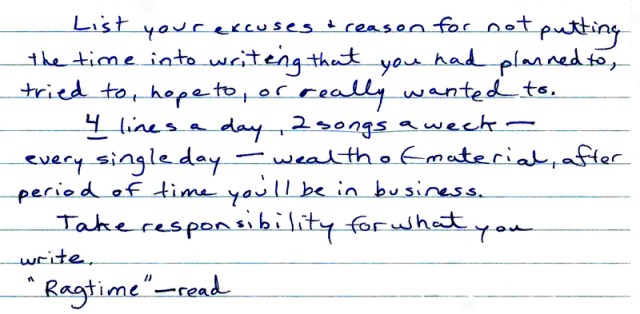 List your excuses + reason for not putting
the time into writing that you had planned to,
tried to, hope to, or really wanted to.
4 lines a day, 2 songs a week —
every single day — wealth of material, after
period of time you'll be in business.
Take responsibility for what you
write.
"Ragtime" — read